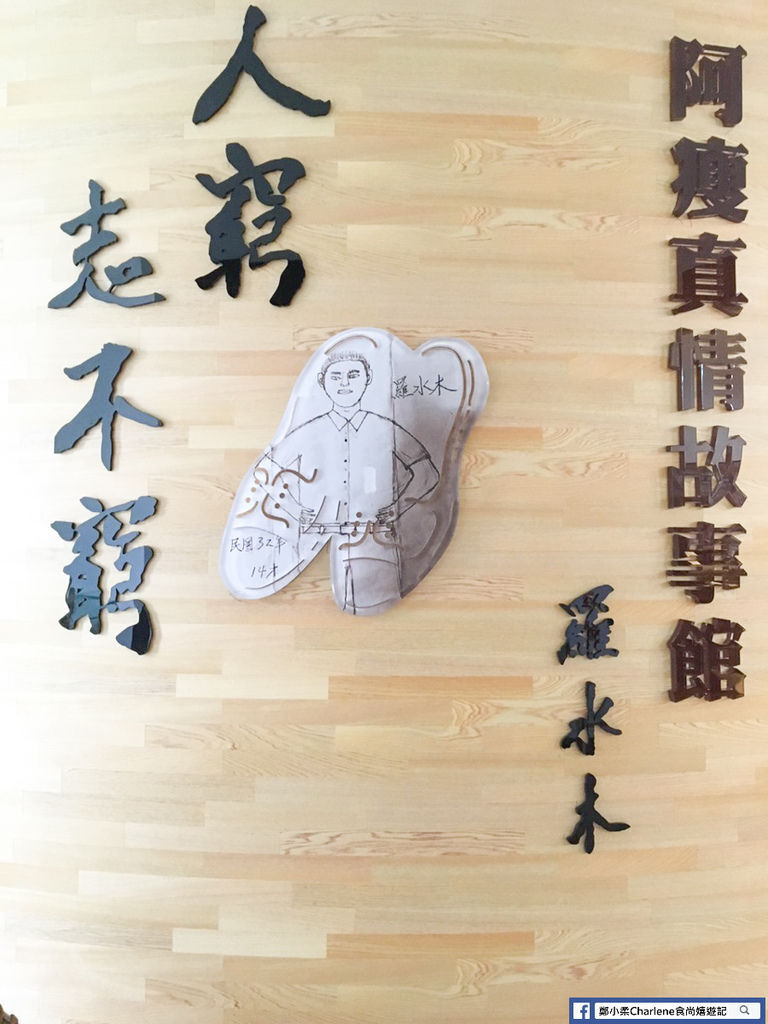 阿瘦真情故事館
羅水木
人窮
志不窮
羅水木
民國32年
14才
鄭小柔Charlene食尚嬉遊記